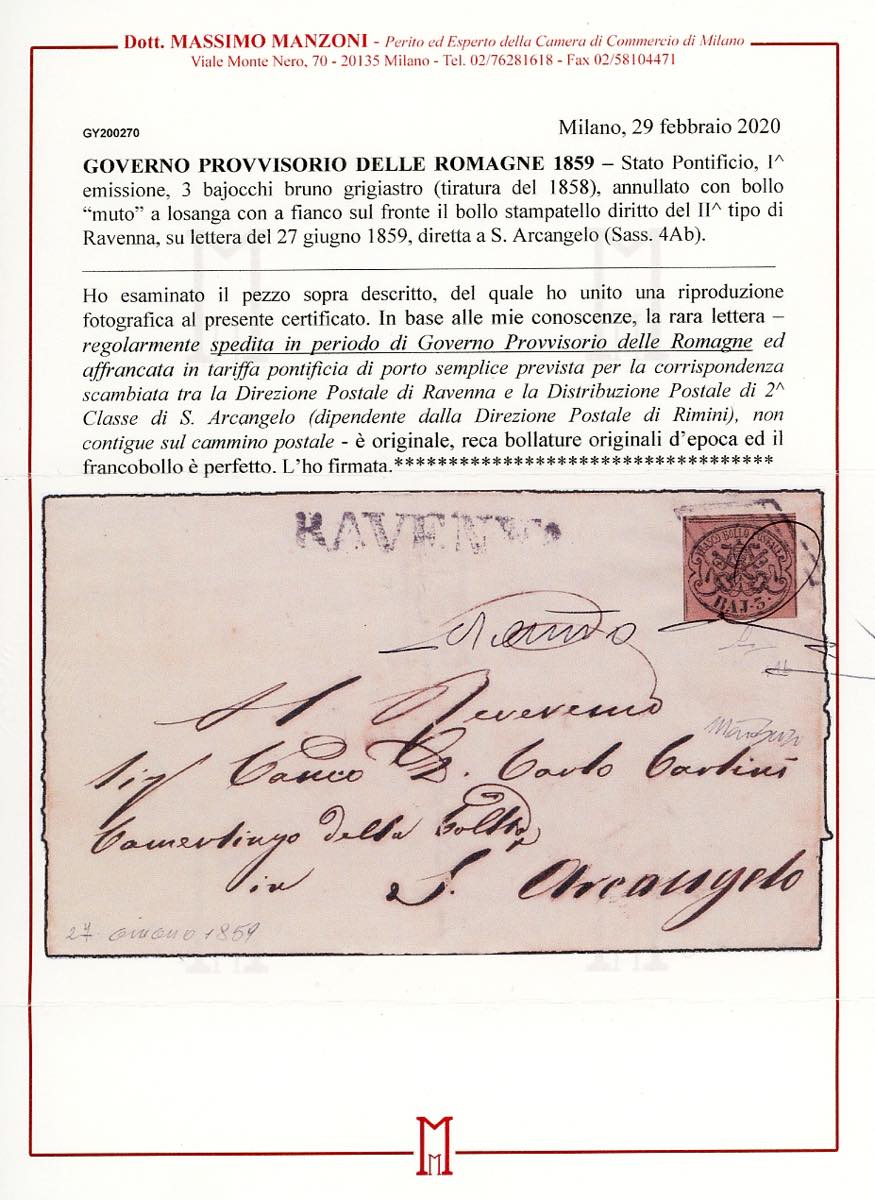 Dott. MASSIMO MANZONI - Perito ed Esperto della Camera di Commercio di Milano
Viale Monte Nero, 70 - 20135 Milano - Tel. 02/76281618 - Fax 02/58104471
GY200270
Milano, 29 febbraio 2020
GOVERNO PROVVISORIO DELLE ROMAGNE 1859 – Stato Pontificio, I^
emissione, 3 bajocchi bruno grigiastro (tiratura del 1858), annullato con bollo
“muto” a losanga con a fianco sul fronte il bollo stampatello diritto del II^ tipo di
Ravenna, su lettera del 27 giugno 1859, diretta a S. Arcangelo (Sass. 4Ab).
Ho esaminato il pezzo sopra descritto, del quale ho unito una riproduzione
fotografica al presente certificato. In base alle mie conoscenze, la rara lettera –
regolarmente spedita in periodo di Governo Provvisorio delle Romagne ed
affrancata in tariffa pontificia di porto semplice prevista per la corrispondenza
scambiata tra la Direzione Postale di Ravenna e la Distribuzione Postale di 2^
Classe di S. Arcangelo (dipendente dalla Direzione Postale di Rimini), non
contigue sul cammino postale - è originale, reca bollature originali d’epoca ed il
francobollo è perfetto. L’ho firmata.***********************************
RAVENNA
FRANCO BOLLO POSTALE
BAJ. 3.
Al Reverendo
Sig Canco D. Carlo
Camerlingo della
in S. Arcangelo
27 giugno 1859
M
M